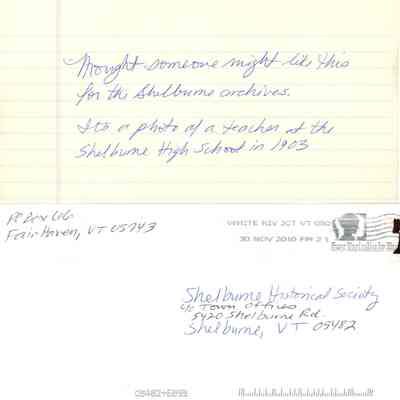 Thought someone might like this
for the Shelburne archives.
It's a photo of a teacher at the
Shelburne High School in 1903
PO Box 616
Fair Haven, VT 05743
WHITE RIV JCT VT 050
30 NOV 2010 PM 2 L
Shelburne Historical Society
c/o Town Offices
5420 Shelburne Rd.
Shelburne, VT 05482